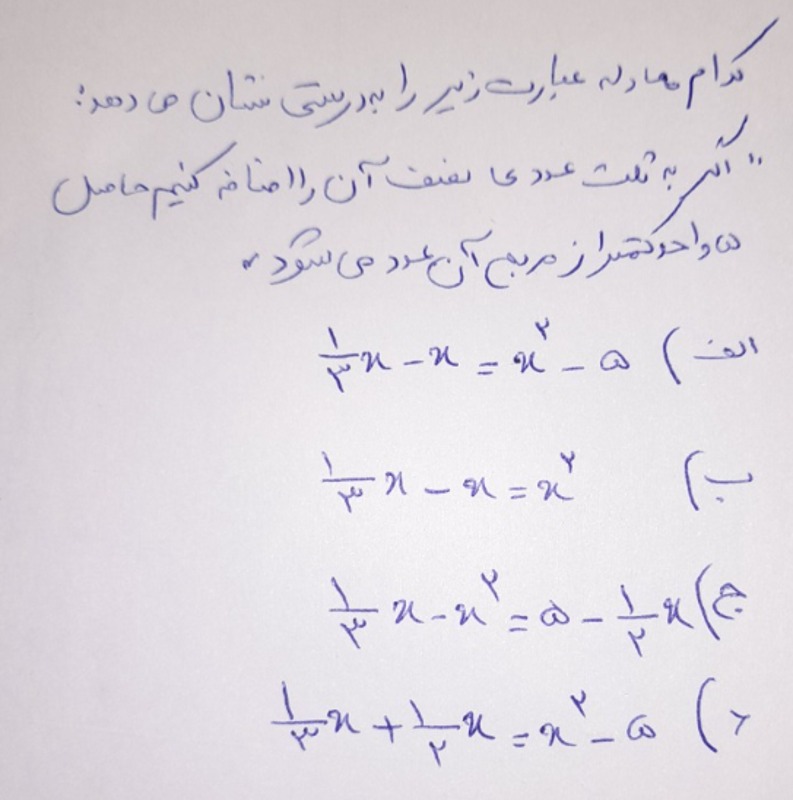 کدام معادله عبارت زیر را به درستی نشان می دهد:
"اگر به ثلث عددی نصف آن را اضافه کنیم حاصل
۵ واحد کمتر از مربع آن عدد می شود"
الف) ۱/۳ x - x = x^۲ - ۵
ب) ۱/۳ x - x = x^۲
ج) ۱/۳ x - x^۲ = ۵ - ۱/۲ x
د) ۱/۳ x + ۱/۲ x = x^۲ - ۵